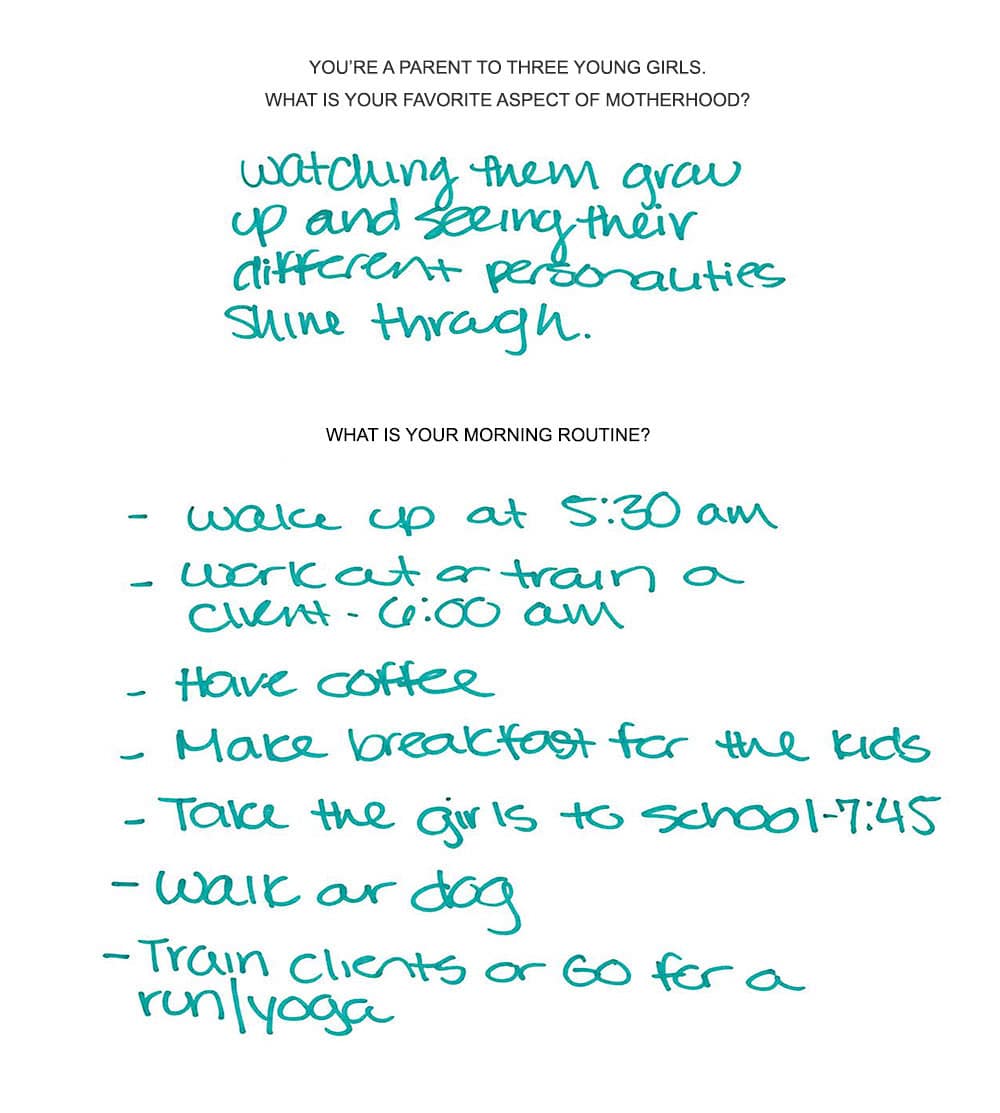 YOU'RE A PARENT TO THREE YOUNG GIRLS.
WHAT IS YOUR FAVORITE ASPECT OF MOTHERHOOD?
watching them grow
up and seeing their
different personalities
shine through.
WHAT IS YOUR MORNING ROUTINE?
- wake up at 5:30 am
- work out or train a
client - 6:00 am
- Have coffee
- Make breakfast for the kids
- Take the girls to school-7:45
- walk our dog
- Train clients or GO for a
run/yoga